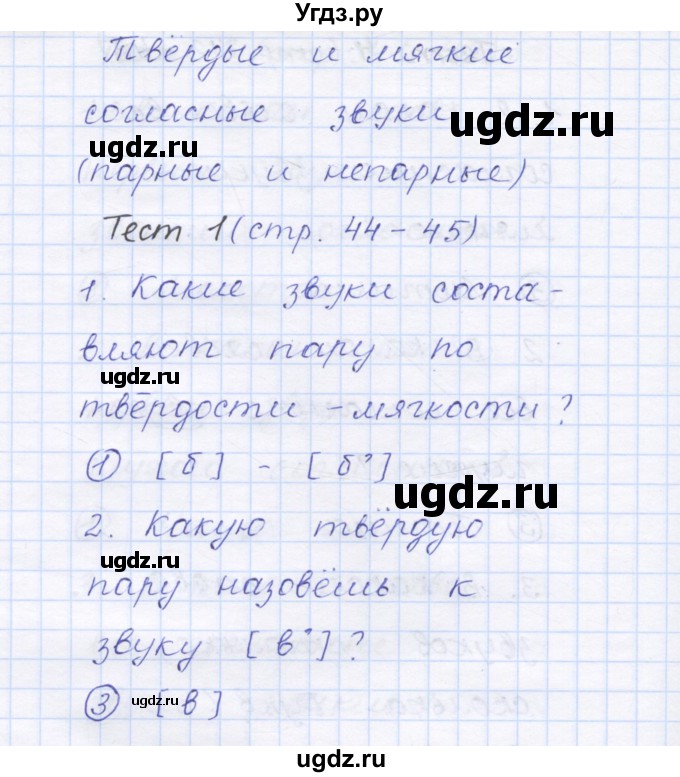 Угдз.ру
Твёрдые и мягкие
согласные звуки
ugdz.ru
ugdz.ru
(парные и непарные)
Тест 1 (стр. 44-45)
1. Какие звуки соста-
вляют пару по
ugdz.ru
твёрдости - мягкости?
① [б] - [б']
ugdz.ru
2. Какую твёрдую
ugdz.ru
пару назовёшь к
звуку [в']?
③ [в]
ugdz.ru
ugdz.ru
ugdz.ru